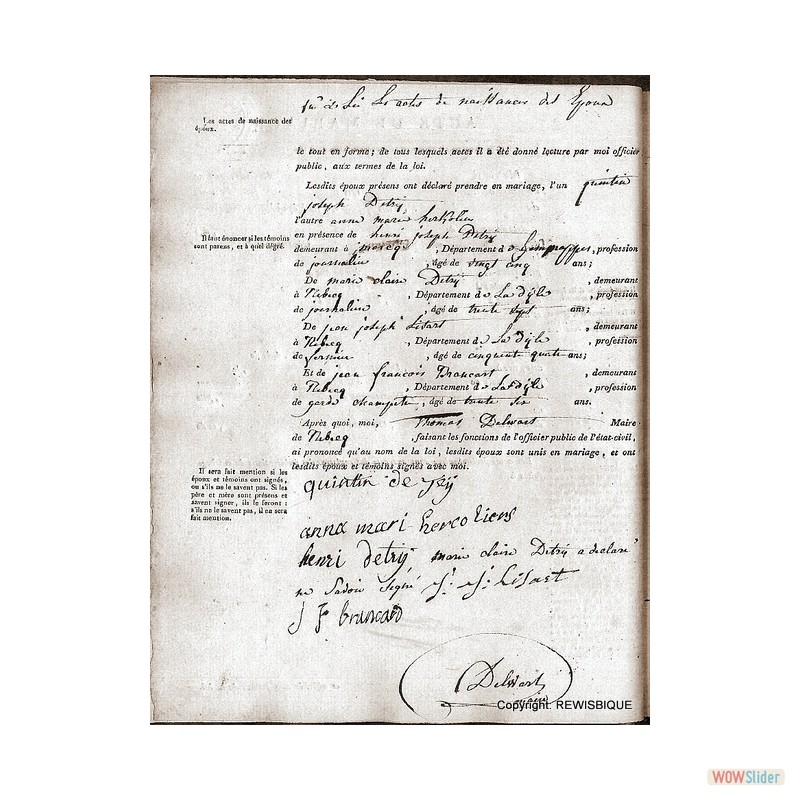 Les actes de naissances des Epoux
Les actes de naissance des
époux.
le tout en forme ; de tous lesquels actes il a été donné lecture par moi officier
public, aux termes de la loi.
Lesdits époux présens ont déclaré prendre en mariage, l'un quintin
joseph Detrij
l'autre anne marie
Il faut énoncer si les témoins
sont parens, et à quel degré.
en présence de henri joseph Detrij
demeurant à , Département de , profession
de journalier , âgé de vingt cinq ans ;
De marie claire Detrij , demeurant
à Rebecq , Département de La dijle , profession
de journaliere , âgé de trente sept ans ;
De jean joseph Lisart , demeurant
à Rebecq , Département de La dijle , profession
de fermier , âgé de cinquante quatre ans ;
Et de jean francois Brancart , demeurant
à Rebecq , Département de La dijle , profession
de garde champetre , âgé de trente six ans.
Après quoi, moi, Thomas Delwart Maire
de Rebecq , faisant les fonctions de l'officier public de l'état-civil,
ai prononcé qu'au nom de la loi, lesdits époux sont unis en mariage, et ont
lesdits époux et témoins signés avec moi.
Il sera fait mention si les
époux et témoins ont signés,
ou s'ils ne le savent pas. Si les
père et mère sont présens et
savent signer, ils le feront :
s'ils ne le savent pas, il en sera
fait mention.
quintin de
anna mari hercoliers
henri detrij marie claire Detrij a declaré
ne Savoir Signé J. J. Lisart
J F brancard
Delwart
maire
Copyright: REWISBIQUE
WOWSlider